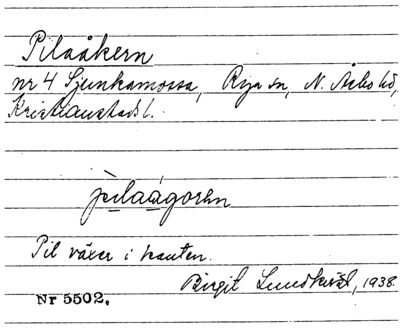 Pilaåkern
nr 4 Sjunkamossa, Rya sn, N. Åsbo hd,
Kristianstads l.
pìlaågoren
Pil växer i kanten.
Birgit Lundkvist, 1938.
Nr 5502.